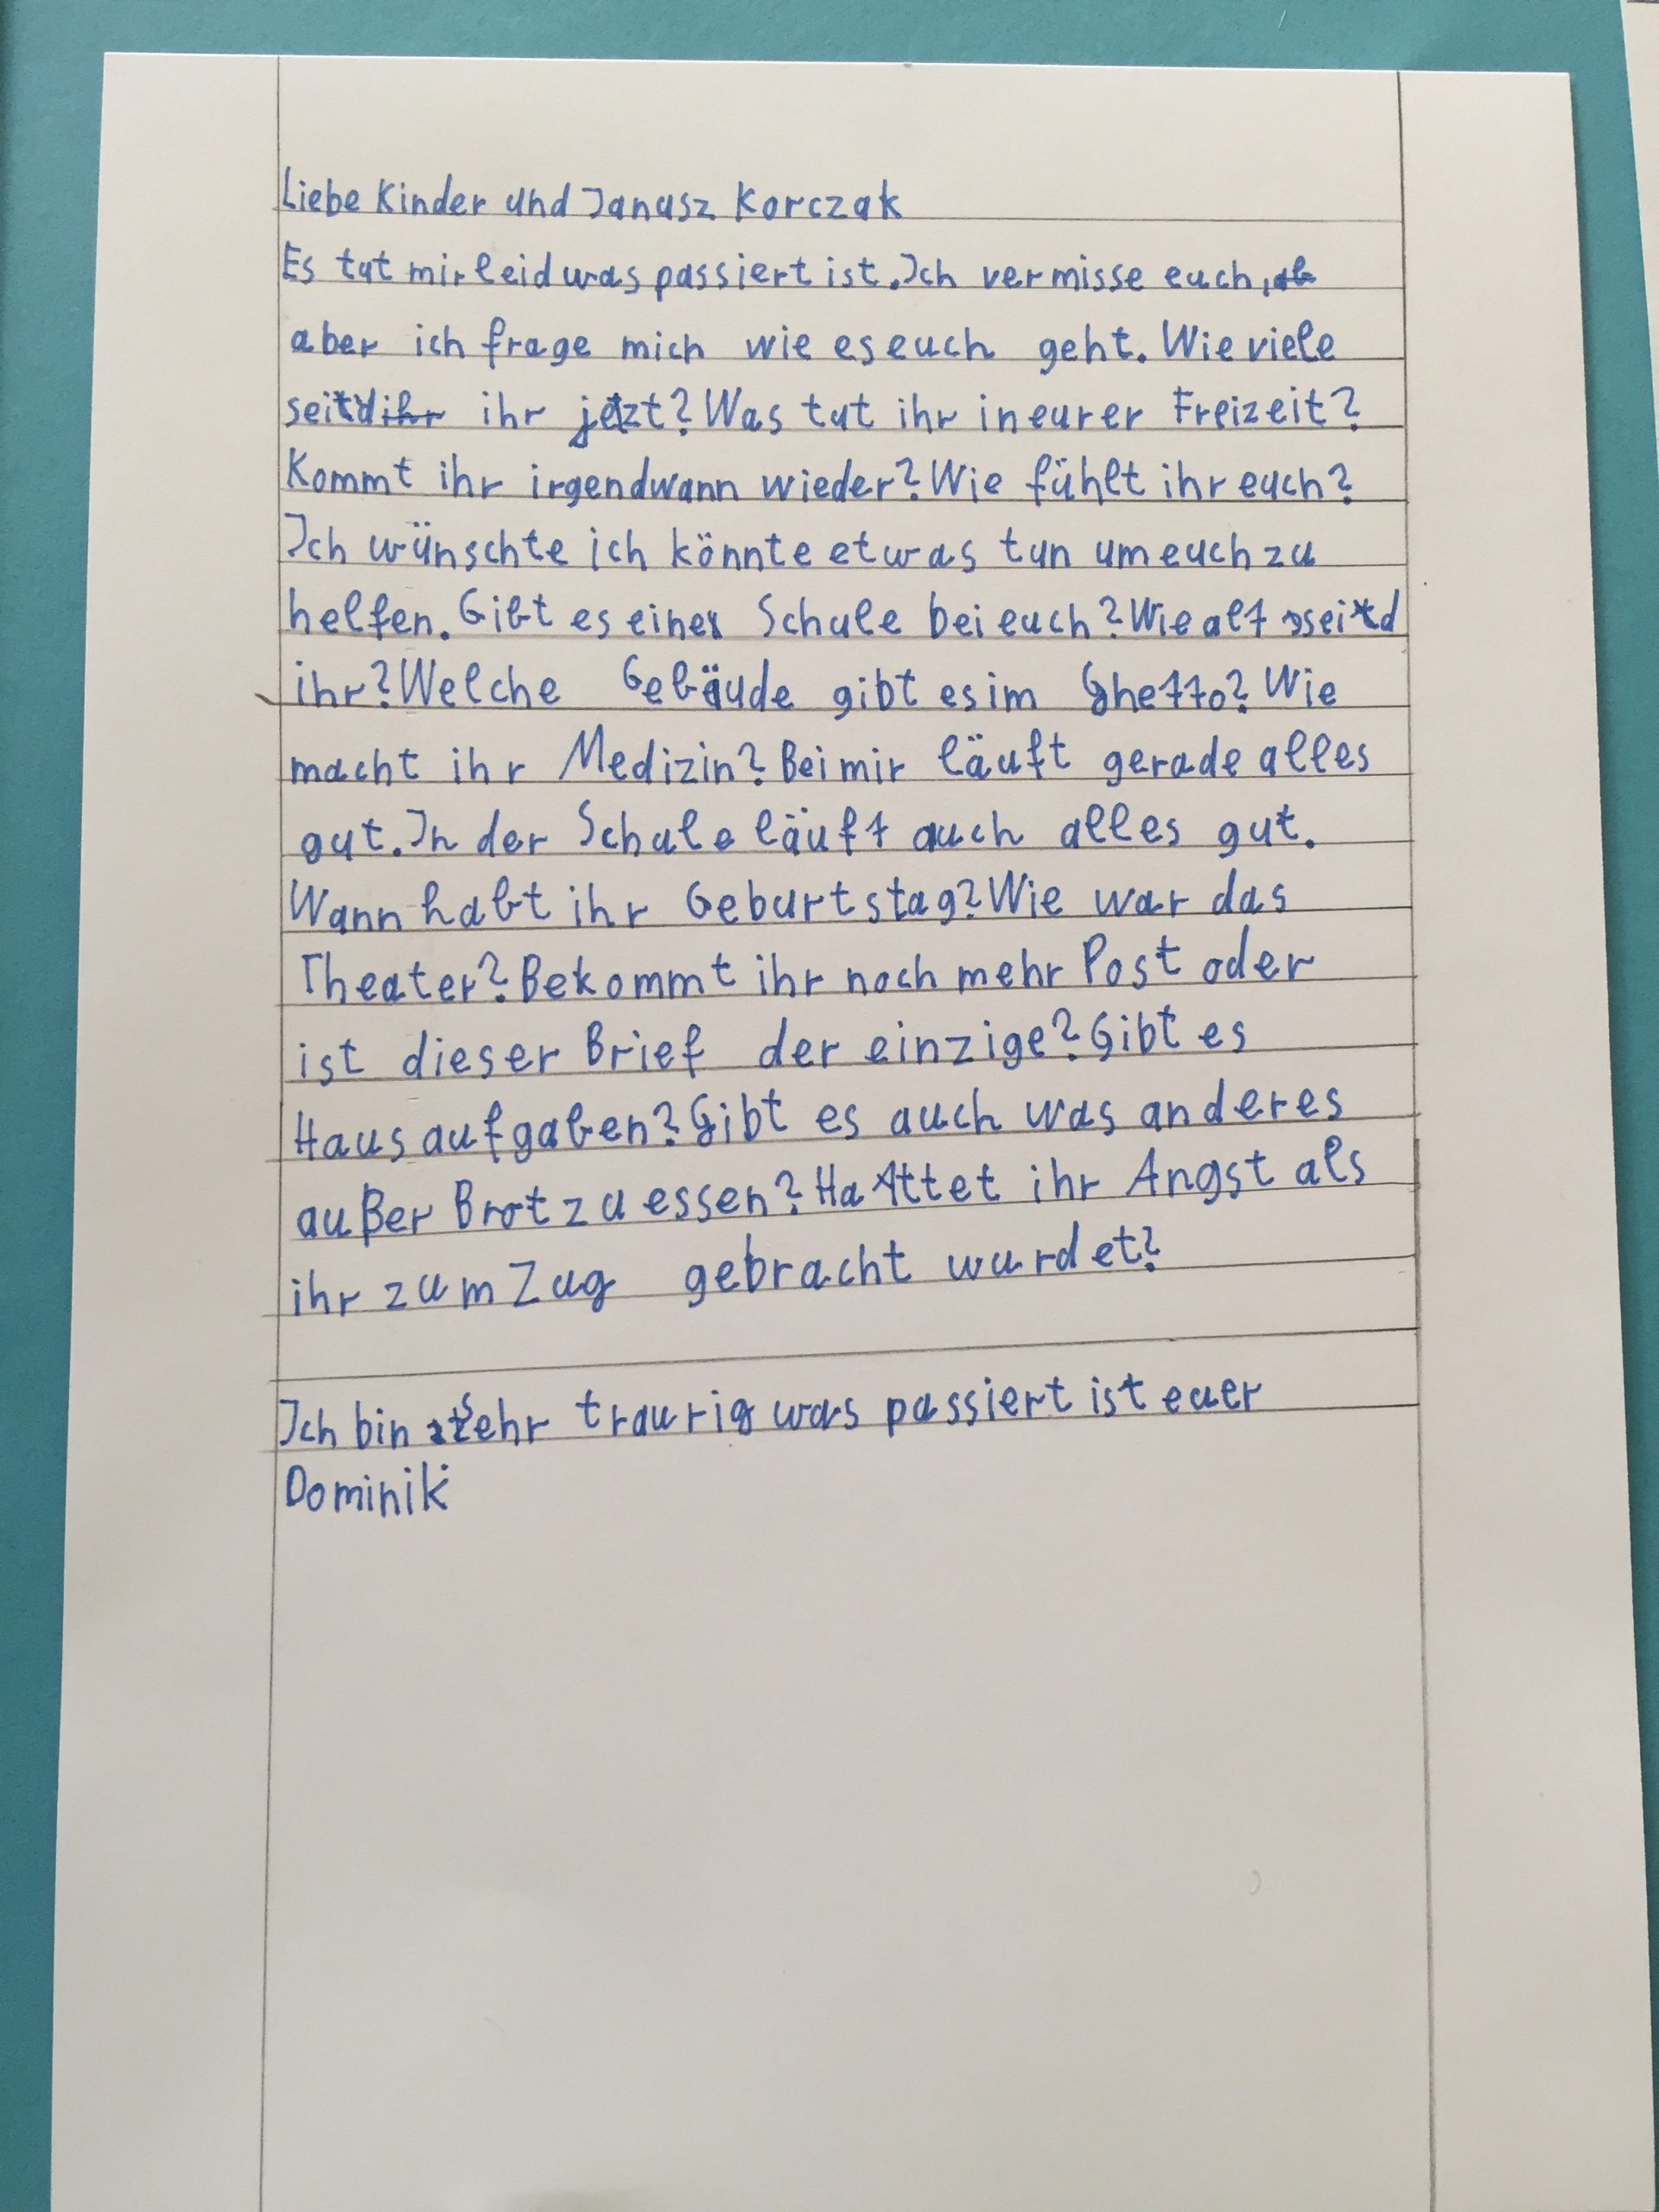 Liebe Kinder und Janusz Korczak
Es tut mir leid was passiert ist. Ich vermisse euch,
aber ich frage mich wie es euch geht. Wie viele
seid ihr jetzt? Was tut ihr in eurer Freizeit?
Kommt ihr irgendwann wieder? Wie fühlt ihr euch?
Ich wünschte ich könnte etwas tun um euch zu
helfen. Gibt es eine Schule bei euch? Wie alt seid
ihr? Welche Gebäude gibt es im Ghetto? Wie
macht ihr Medizin? Bei mir läuft gerade alles
gut. In der Schule läuft auch alles gut.
Wann habt ihr Geburtstag? Wie war das
Theater? Bekommt ihr noch mehr Post oder
ist dieser Brief der einzige? Gibt es
Hausaufgaben? Gibt es auch was anderes
außer Brot zu essen? Hattet ihr Angst als
ihr zum Zug gebracht wurdet?
Ich bin sehr traurig was passiert ist euer
Dominik